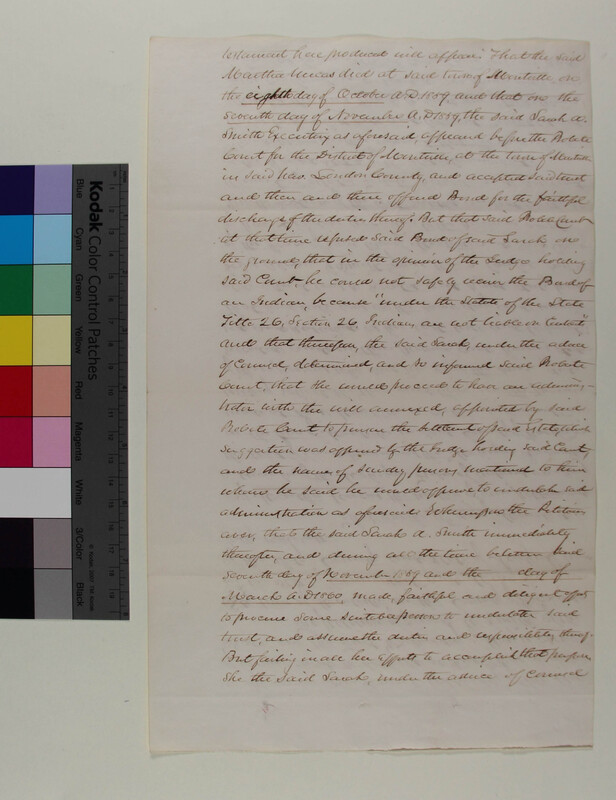 testament here produced will appear. That the said
Martha Uncas died at said town of Montville, on
the eighth day of October A.D. 1859, and that on the
seventh day of November A.D. 1859, the said Sarah A.
Smith Executrix as aforesaid, appeared before the Probate
Court for the District of Montville, at the town of Montville
in said New London County, and accepted said trust
and then and there offered Bond for the faithful
discharge of the duties thereof. But that said Probate Court
at that time refused said Bond of said Sarah, on
the ground, that in the opinion of the Judge holding
said Court, he could not safely receive the Bond of
an Indian, because "under the Statute of the State
Title 26, Section 26, Indians are not liable on Contract"
and that thereupon, the said Sarah, under the advice
of Counsel, determined, and so informed said Probate
Court, that she would proceed to have an adminis-
trator with the will annexed, appointed by said
Probate Court to pursue the settlement of said Estate, which
suggestion was approved by the Judge holding said Court,
and the names of sundry persons mentioned to them
whom he said he would approve to undertake said
administration as aforesaid. Whereupon the Petitioners
aver, that the said Sarah A. Smith immediately
thereafter, and during all the time between said
seventh day of November 1859 and the day of
March A.D. 1860, made, faithful and diligent effort
to procure some suitable person to undertake said
trust, and assume the duties and responsibilities thereof.
But failing in all her efforts to accomplish that purpose
She the said Sarah, under the advice of Counsel
Kodak Color Control Patches
Blue
Cyan
Green
Yellow
Red
Magenta
White
3/Color
Black